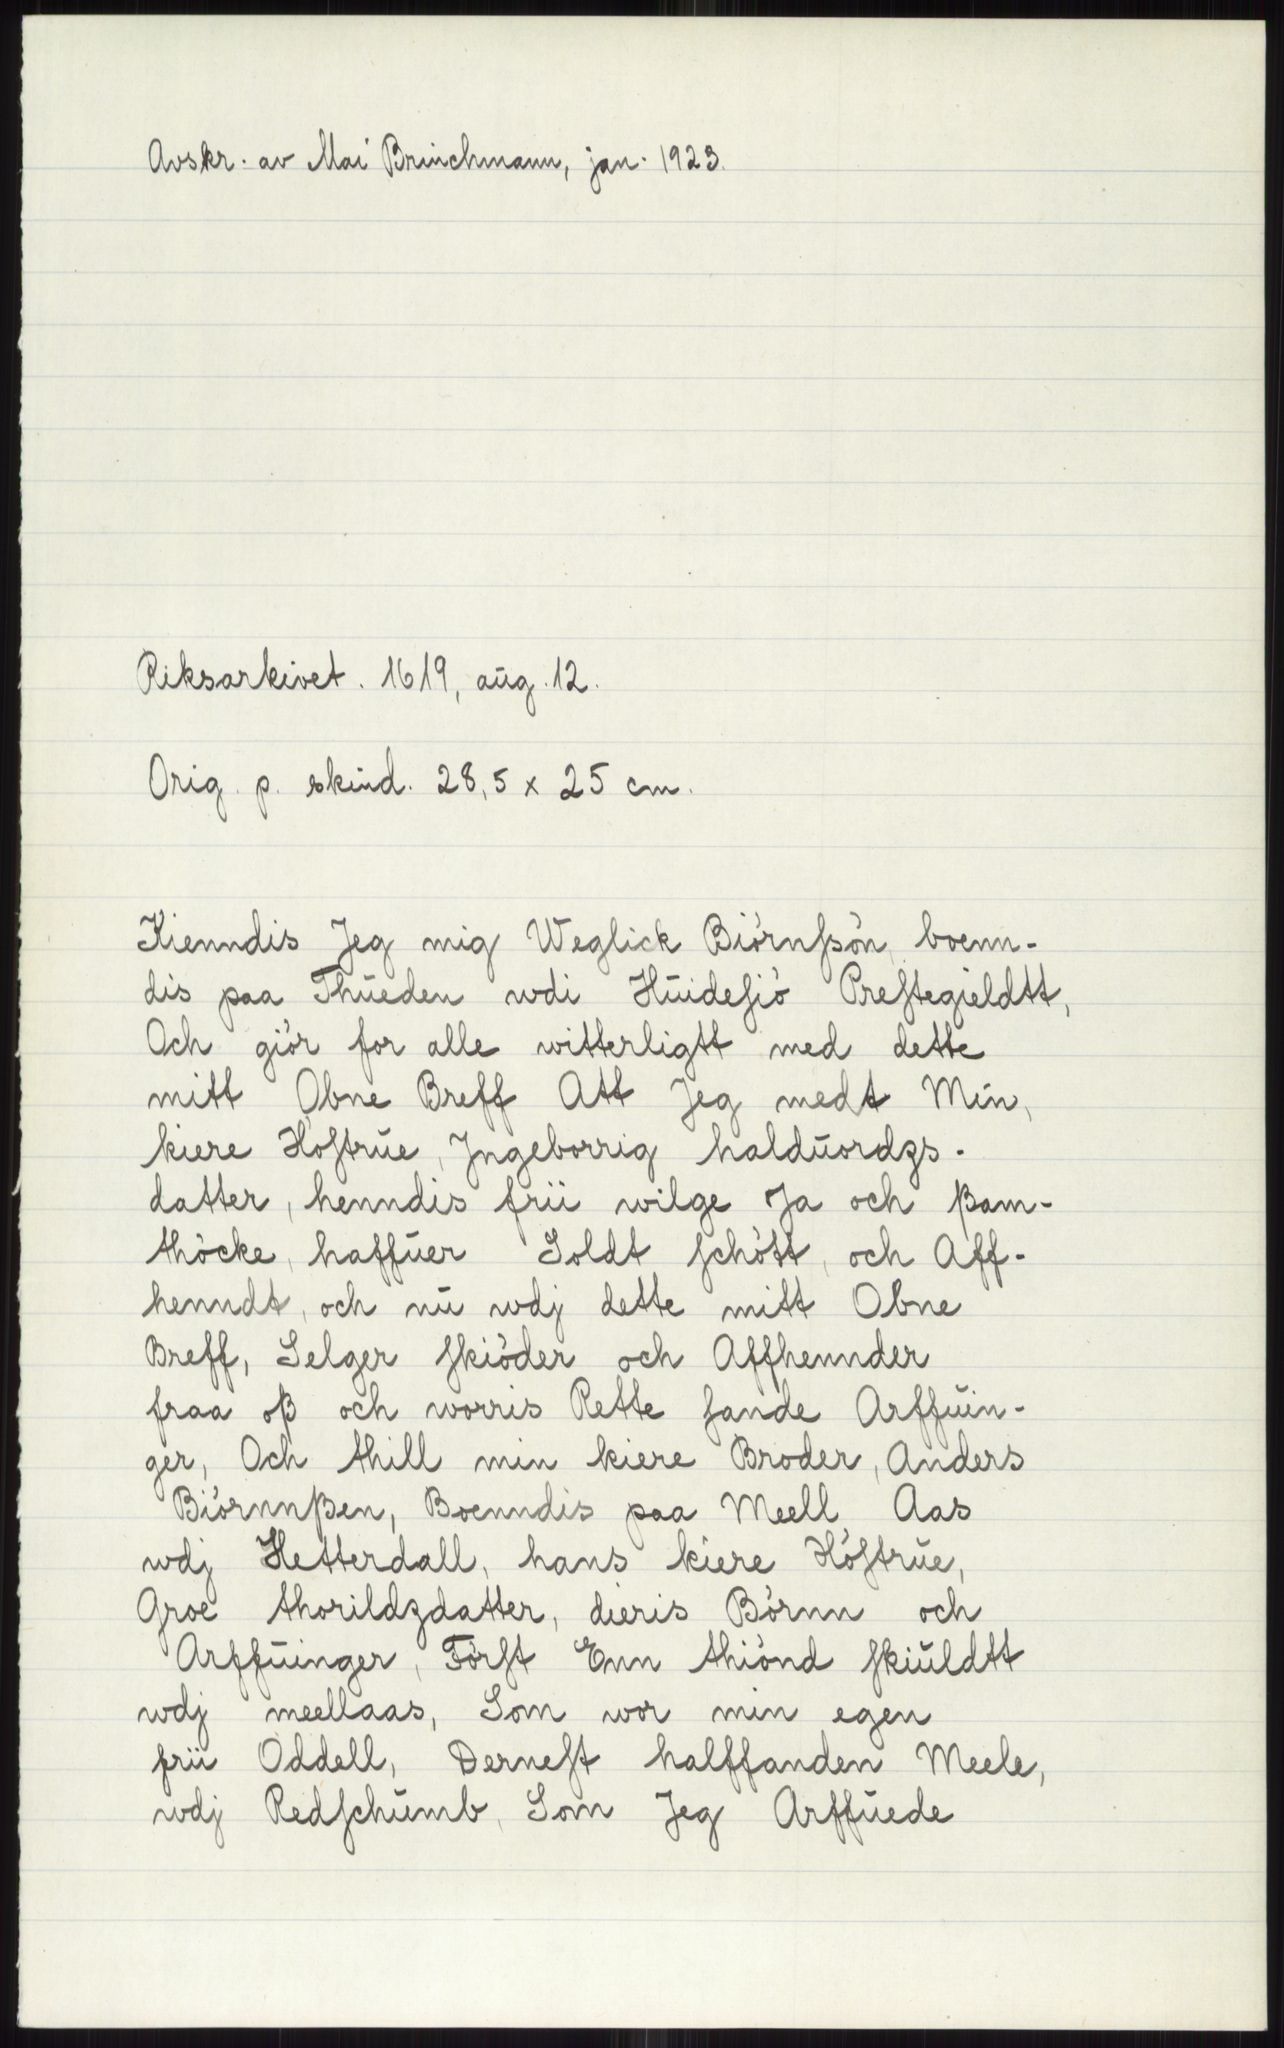 Avskr. av Mai Brinchmann, jan. 1923.
Riksarkivet. 1619, aug. 12.
Orig. p. skind. 28,5 x 25 cm.
Kienndis Jeg mig Weglick Biörnſsön, boenn-
dis paa Thueden wdi Huideſiö Preſtegieldtt,
Och giör for alle witterligtt med dette
mitt Obne Breff Att Jeg medt Min,
kiere Hoſtrue, Jngeborrig halduordzs-
datter, henndis frii wilge Ja och ßam-
thöcke, haffuer Soldt ſchött, och Aff-
henndt, och nu wdj dette mitt Obne
Breff, Selger ſkiöder och Affhennder
fraa oß och worris Rette ſande Arffuin-
ger, Och thill min kiere Broder, Anders
Biörnnßen, Boenndis paa Meell Aas
wdj Hetterdall, hans kiere Höſtrue,
Groe thorildzdatter, dieris Börnn och
Arffuinger, Förſt Enn thiönd ſkiuldtt
wdj meellaas, Som wor min egen
frii Oddell, Derneſt halffanden Meele,
wdj Redſchumb, Som Jeg Arffuede